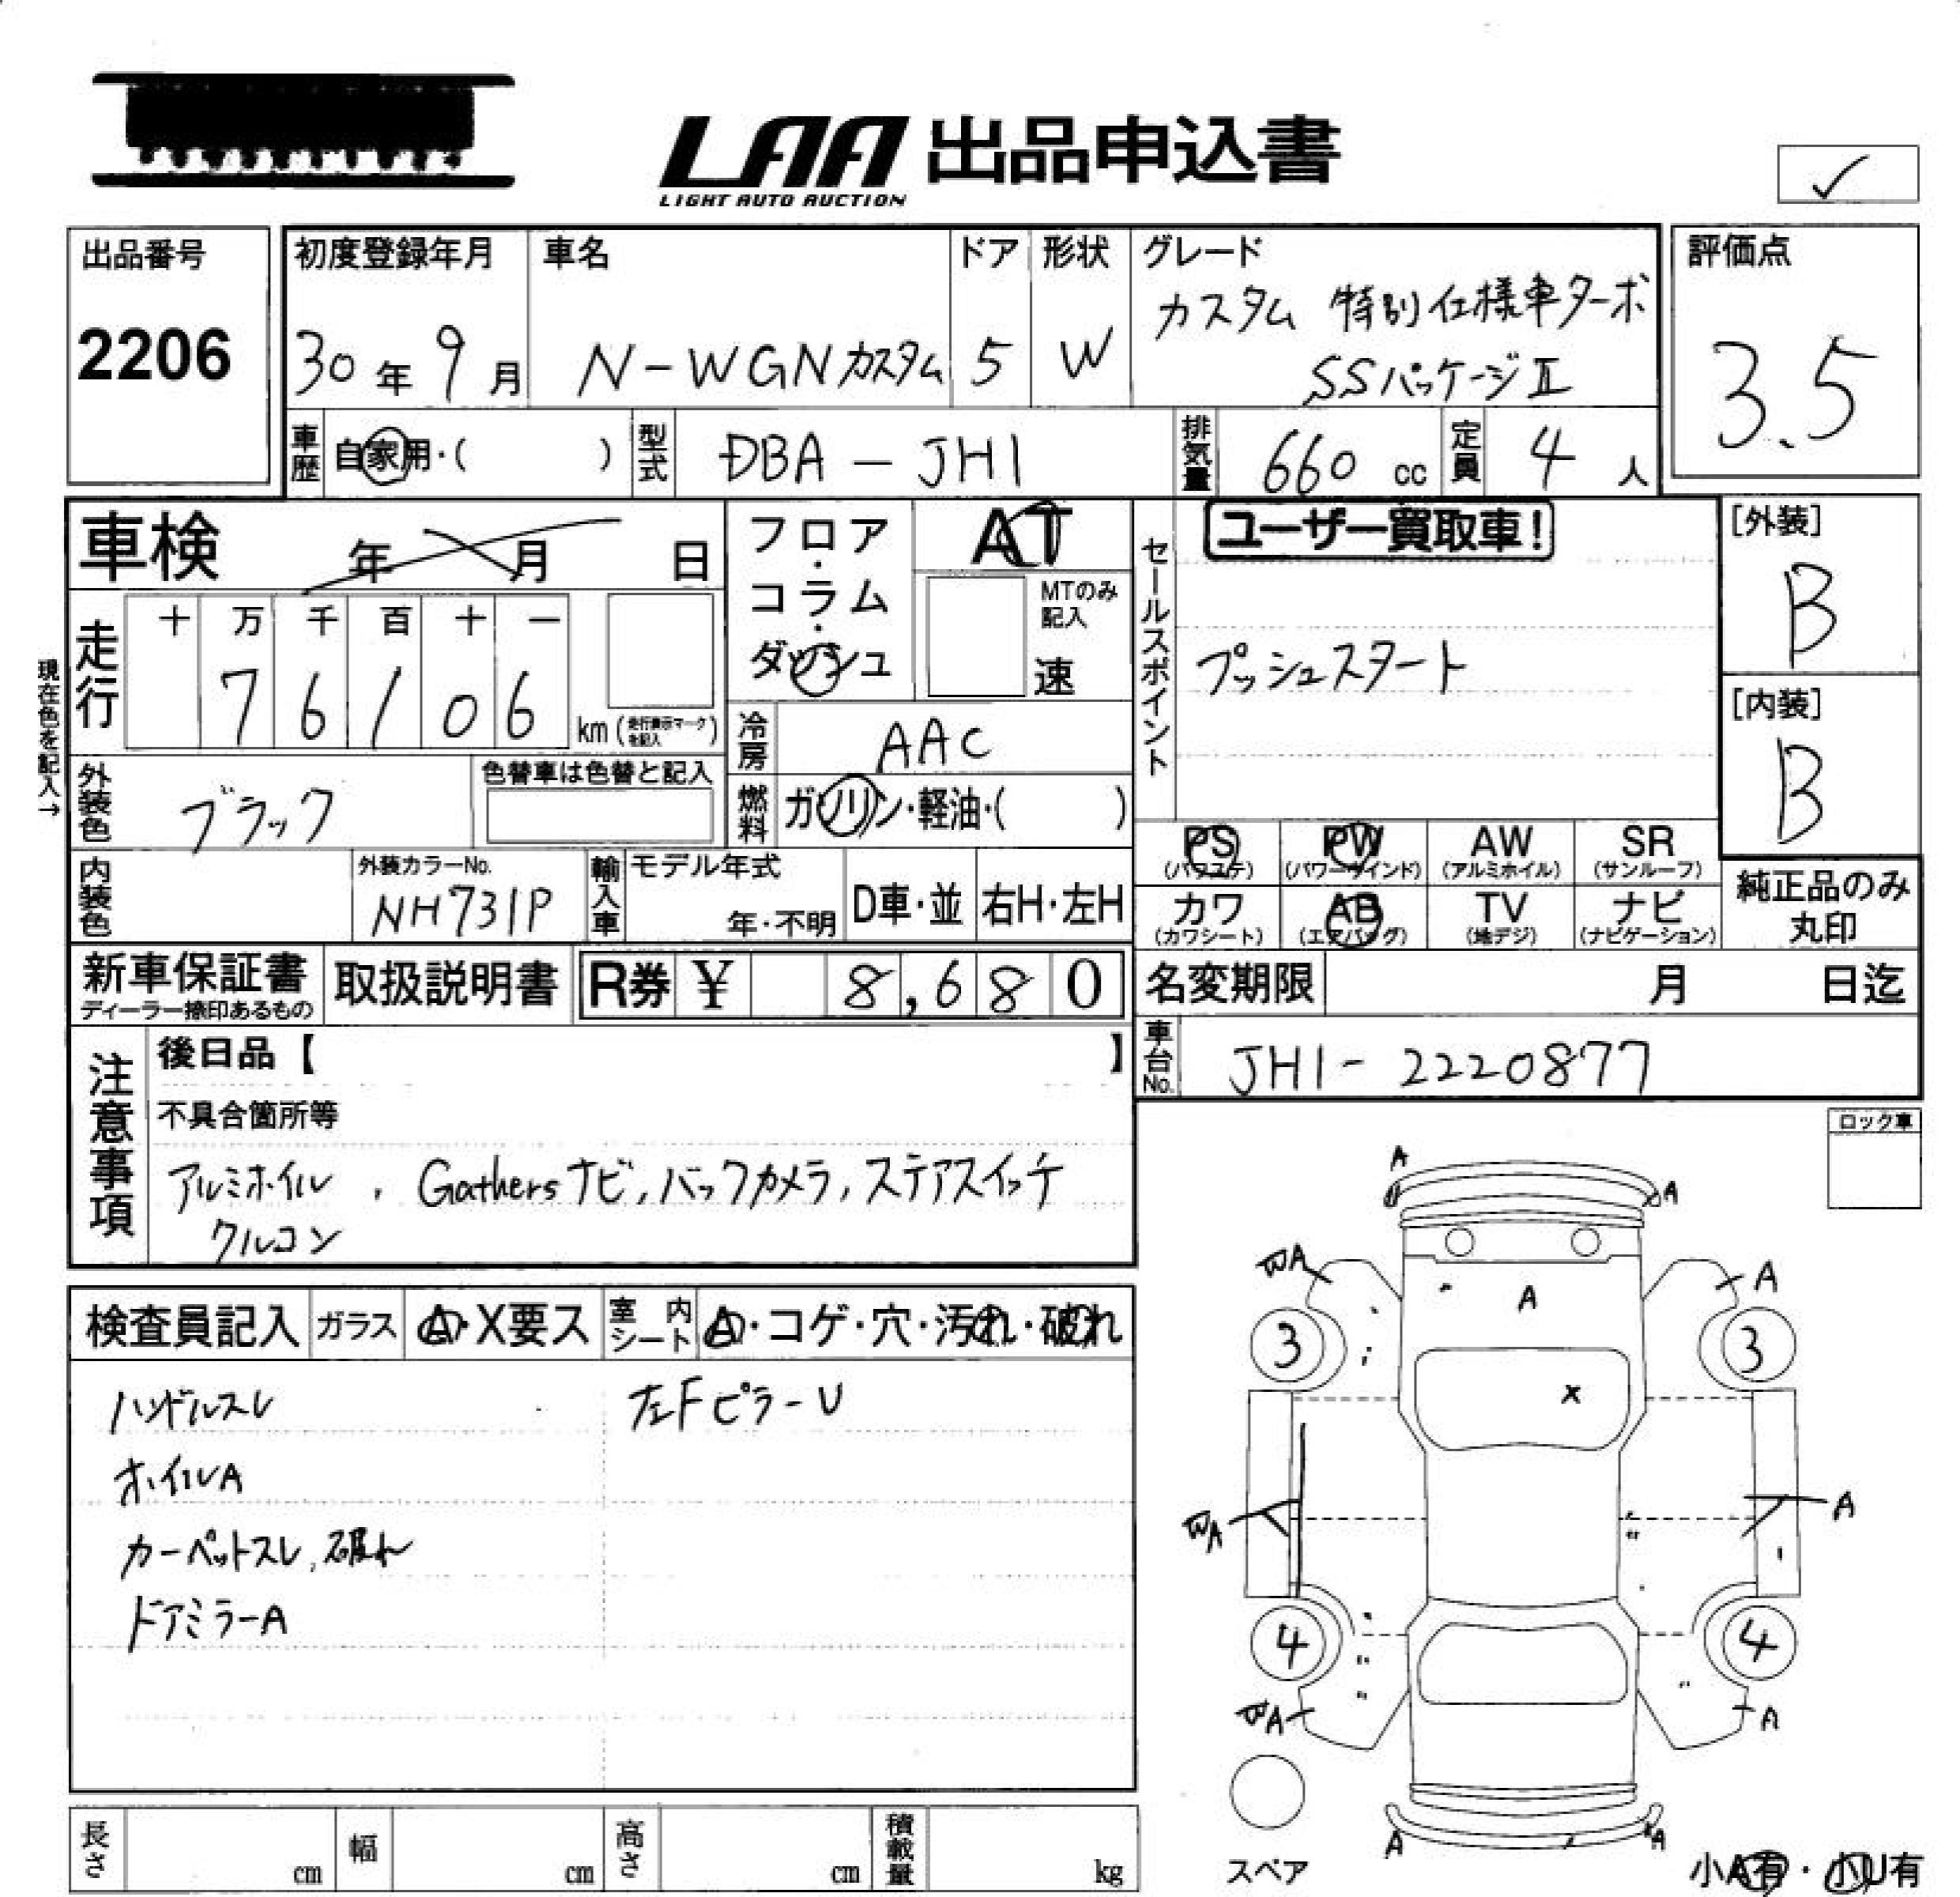 LAA 出品申込書
LIGHT AUTO AUCTION
✓
出品番号
2206
初度登録年月
30年9月
車名
N-WGNカスタム
ドア
5
形状
W
グレード
カスタム 特別仕様車ターボ
SSパッケージⅡ
評価点
3.5
車歴
自家用・( )
型式
DBA-JH1
排気量
660 cc
定員
4 人
車検 年 月 日
フロア・コラム・ダッシュ
AT
MTのみ記入
速
セールスポイント
ユーザー買取車!
プッシュスタート
[外装]
B
[内装]
B
現在色を記入→
走行
十 万 千 百 十 一
7 6 1 0 6
km (走行表示マークを記入)
冷房
AAC
外装色
ブラック
色替車は色替と記入
燃料
ガソリン・軽油・( )
内装色
外装カラーNo.
NH731P
輸入車
モデル年式
年・不明
D車・並
右H・左H
PS (パワステ)
PW (パワーウインド)
AW (アルミホイル)
SR (サンルーフ)
カワ (カワシート)
AB (エアバッグ)
TV (地デジ)
ナビ (ナビゲーション)
純正品のみ
丸印
新車保証書
ディーラー捺印あるもの
取扱説明書
R券 ¥ 8,680
名変期限 月 日迄
車台No.
JH1-2220877
注意事項
後日品【 】
不具合箇所等
アルミホイル , Gathersナビ,バックカメラ,ステアスイッチ
クルコン
ロック車
検査員記入
ガラス
A・X要ス
室内シート
A・コゲ・穴・汚れ・破れ
ハンドルスレ
左FピラーU
ホイルA
カーペットスレ,破れ
ドアミラーA
A
A
A
A
3
3
X
A
A
4
4
A
A
A
スペア
小A有・小U有
長さ cm
幅 cm
高さ cm
積載量 kg